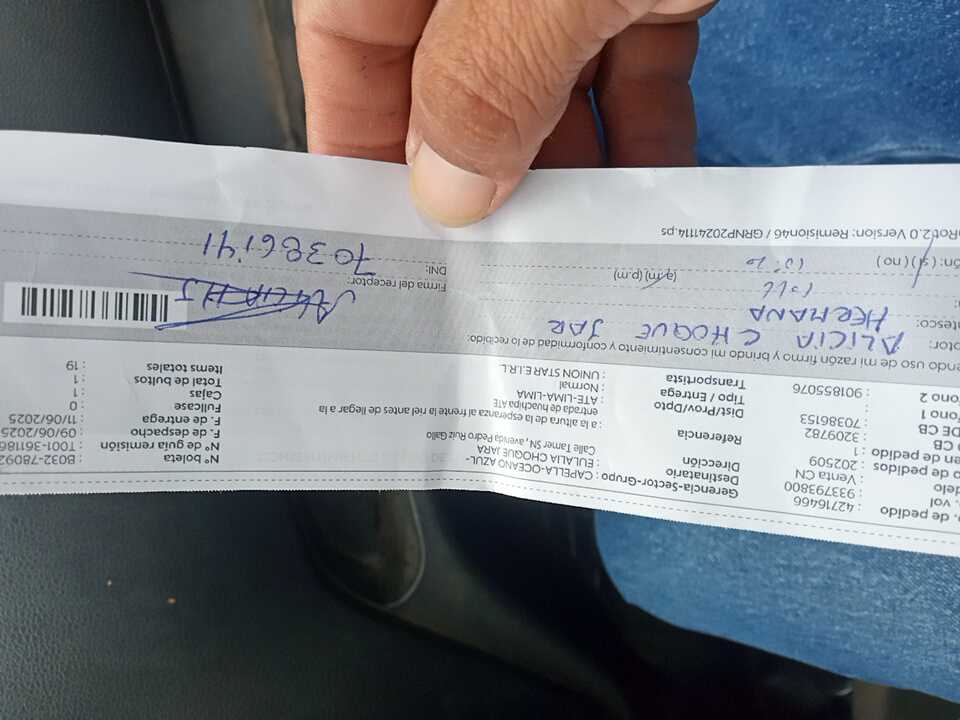 o. de pedido : 42716466
. vol : 933793800
delo : Venta CN
o de pedidos : 202509
en de pedido : 1
o CB : 3209782
DE CB : 70386153
fono 1 :
fono 2 : 901855076
Gerencia-Sector-Grupo : CAPELLA-OCEANO AZUL-
Destinatario : EULALIA CHOQUE JARA
Dirección Calle Tamer SN, avenida Pedro Ruiz Gallo
Referencia a la altura de la esperanza al frente la riel antes de llegar a la
entrada de huachipa ATE
Dist/Prov/Dpto ATE-LIMA-LIMA
Tipo / Entrega : Normal
Transportista : UNION STAR E.I.R.L
N° boleta : B032-78092
N° guía de remisión : T001-361186
F. de despacho : 09/06/2025
F. de entrega : 11/06/2025
Fullcase : 0
Cajas : 1
Total de bultos : 1
Items totales : 19
endo uso de mi razón firmo y brindo mi consentimiento y conformidad de lo recibido:
ptor: ALICIA CHOQUE JAR
ntesco: HERMANA
(a.m) (p.m)
ón: (si) (no)
Firma del receptor:
DNI: 70386141
oRot2.0 Version: Remision46 / GRNP20241114.ps